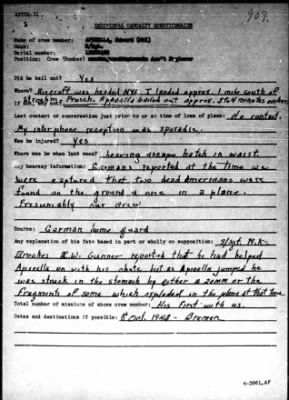 909.
INDIVIDUAL CASUALTY QUESTIONNAIRE
Name of crew member: Edward (NMI)
Rank:
Serial number:
Position: Crew (Number)
Did he bail out? Yes
Where? Aircraft was headed NW. I landed approx. 1 mile south of
bailed out approx.
Last contact or conversation just prior to or at time of loss of plane: No contact.
My interphone reception was
Was he injured? Yes
Where was he when last seen? Leaving escape hatch in waist.
Any hearsay information: Germans reported at the time we
were captured that two dead Americans were
found on the ground & one in a plane.
Presumably our crew.
Source: German home guard
Any explanation of his fate based in part or wholly on supposition: S/Sgt. R.K.
R.W. Gunner reported that he had helped
on with his chute but as jumped he
was struck in the stomach by either a 20MM or the
fragments of some which exploded in the plane at that time.
Total number of missions of above crew member: His first with us.
Dates and destinations if possible: 8 Oct. 1943 - Bremen
6-3861,AF